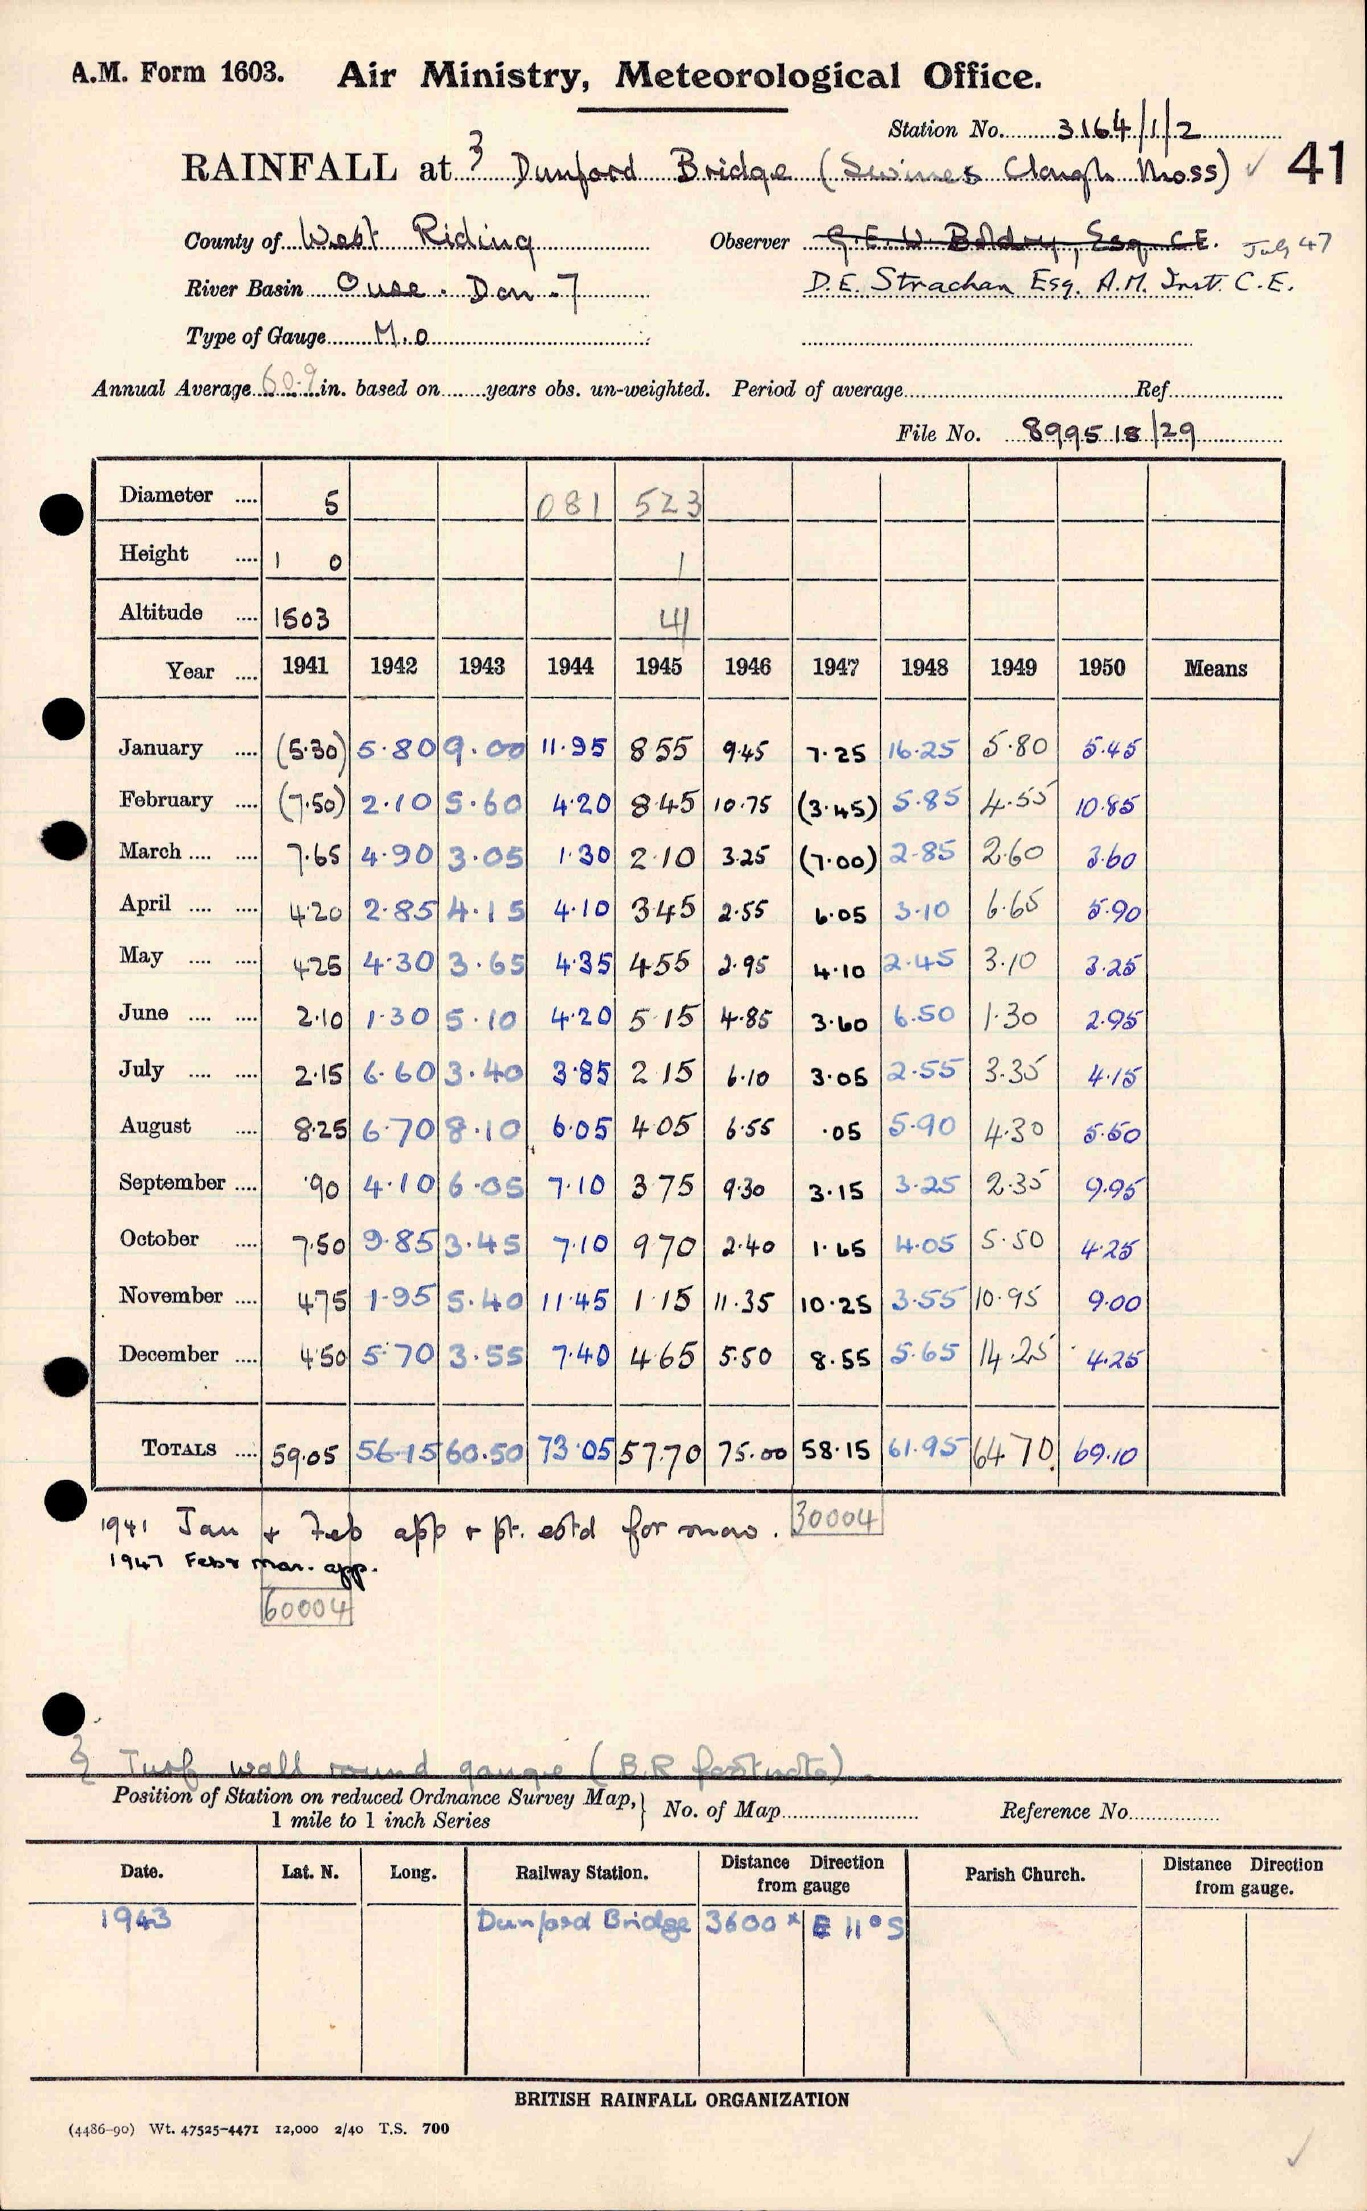 A.M. Form 1603. Air Ministry, Meteorological Office.
Station No. 3164/1/2
RAINFALL at Dunford Bridge (Swines Clough Moss) ✓ 41
County of West Riding Observer G.E.W. Boldry, Esq. C.E. July 47
River Basin Ouse. Don-7 D.E. Strachan Esq. A.M. Inst. C.E.
Type of Gauge M.O
Annual Average 60.9 in. based on years obs. un-weighted. Period of average Ref.
File No. 899518/29
Diameter .... 5 081 523
Height .... 1 0 1
Altitude .... 1503 41
Year .... 1941 1942 1943 1944 1945 1946 1947 1948 1949 1950 Means
January .... (5.30) 5.80 9.00 11.95 8.55 9.45 7.25 16.25 5.80 5.45
February .... (7.50) 2.10 5.60 4.20 8.45 10.75 (3.45) 5.85 4.55 10.85
March .... .... 7.65 4.90 3.05 1.30 2.10 3.25 (7.00) 2.85 2.60 3.60
April .... .... 4.20 2.85 4.15 4.10 3.45 2.55 6.05 3.10 6.65 5.90
May .... .... 4.25 4.30 3.65 4.35 4.55 2.95 4.10 2.45 3.10 3.25
June .... .... 2.10 1.30 5.10 4.20 5.15 4.85 3.60 6.50 1.30 2.95
July .... .... 2.15 6.60 3.40 3.85 2.15 6.10 3.05 2.55 3.35 4.15
August .... 8.25 6.70 8.10 6.05 4.05 6.55 .05 5.90 4.30 5.50
September .... .90 4.10 6.05 7.10 3.75 9.30 3.15 3.25 2.35 9.95
October .... 7.50 9.85 3.45 7.10 9.70 2.40 1.65 4.05 5.50 4.25
November .... 4.75 1.95 5.40 11.45 1.15 11.35 10.25 3.55 10.95 9.00
December .... 4.50 5.70 3.55 7.40 4.65 5.50 8.55 5.65 14.25 4.25
TOTALS .... 59.05 56.15 60.50 73.05 57.70 75.00 58.15 61.95 64.70 69.10
1941 Jan & Feb app & pt. estd for snow. 30004
1947 Feb & Mar. app.
60004
Turf wall round gauge (B.R footnote)
Position of Station on reduced Ordnance Survey Map, 1 mile to 1 inch Series } No. of Map Reference No.
Date. Lat. N. Long. Railway Station. Distance Direction from gauge Parish Church. Distance Direction from gauge.
1943 Dunford Bridge 3600 x E 11° S
BRITISH RAINFALL ORGANIZATION
(4486-90) Wt. 47525-4471 12,000 2/40 T.S. 700